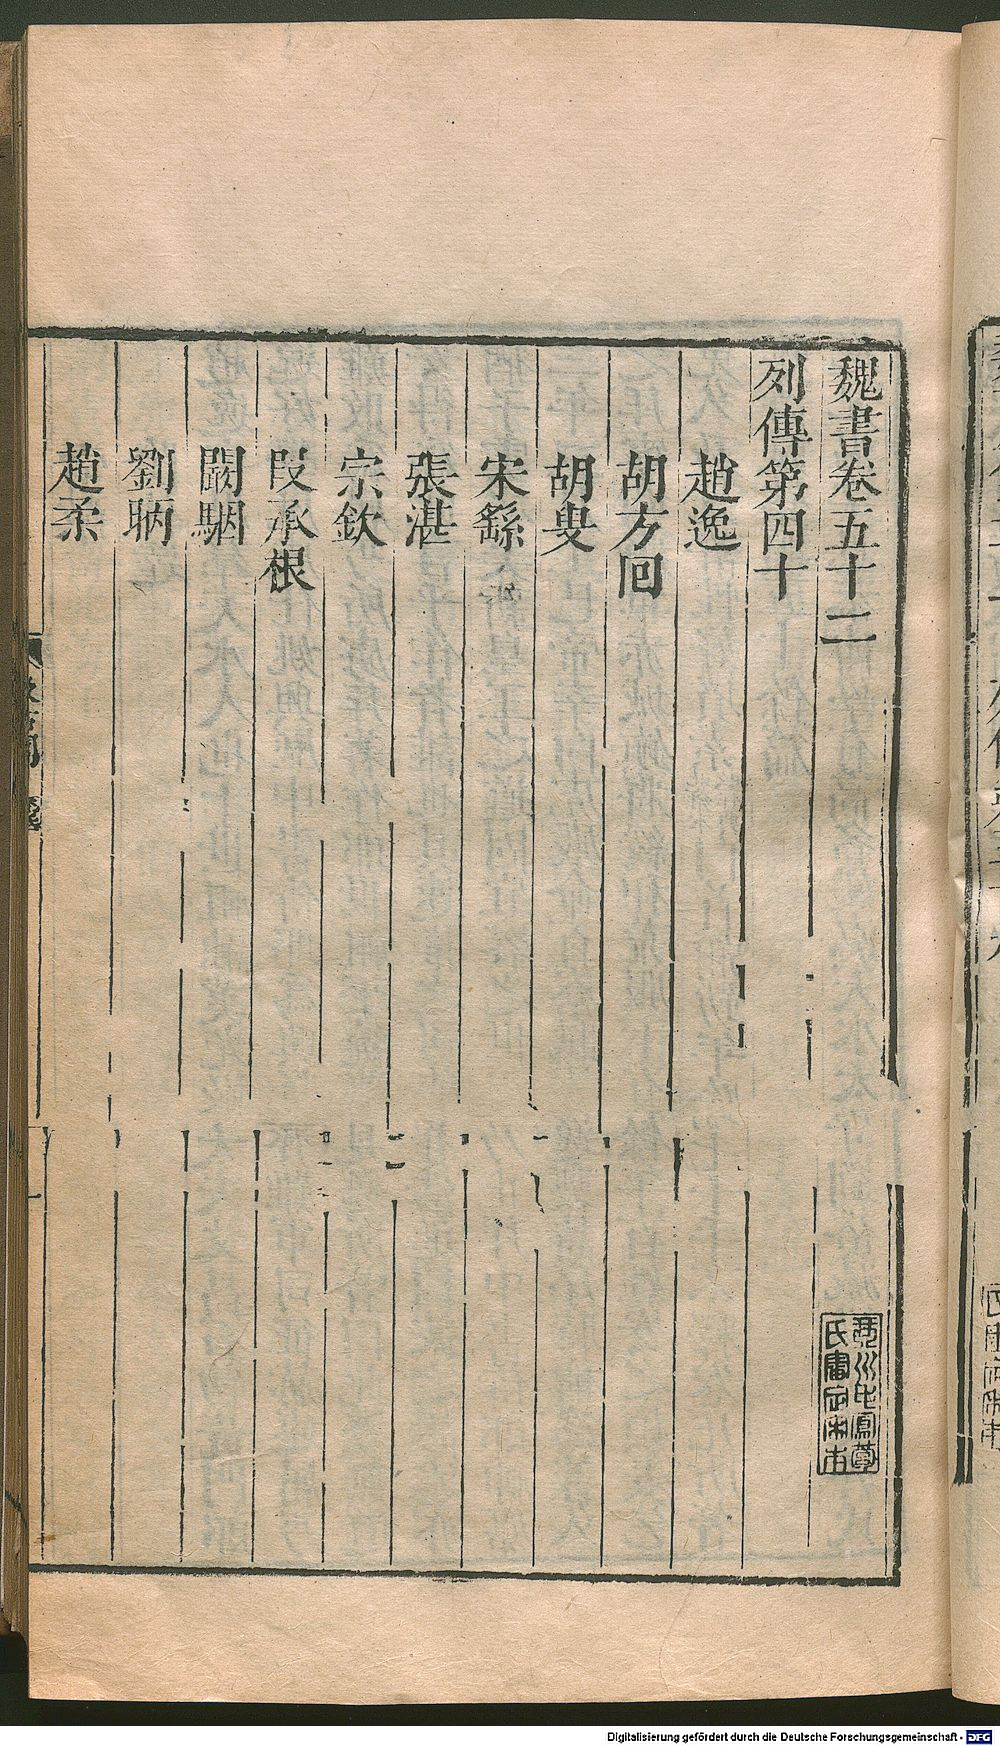 魏書卷五十二
列傳第四十
趙逸
胡方回
胡叟
宋繇
張湛
宗欽
段承根
闞駰
劉昞
趙柔
一
Digitalisierung gefördert durch die Deutsche Forschungsgemeinschaft - DFG